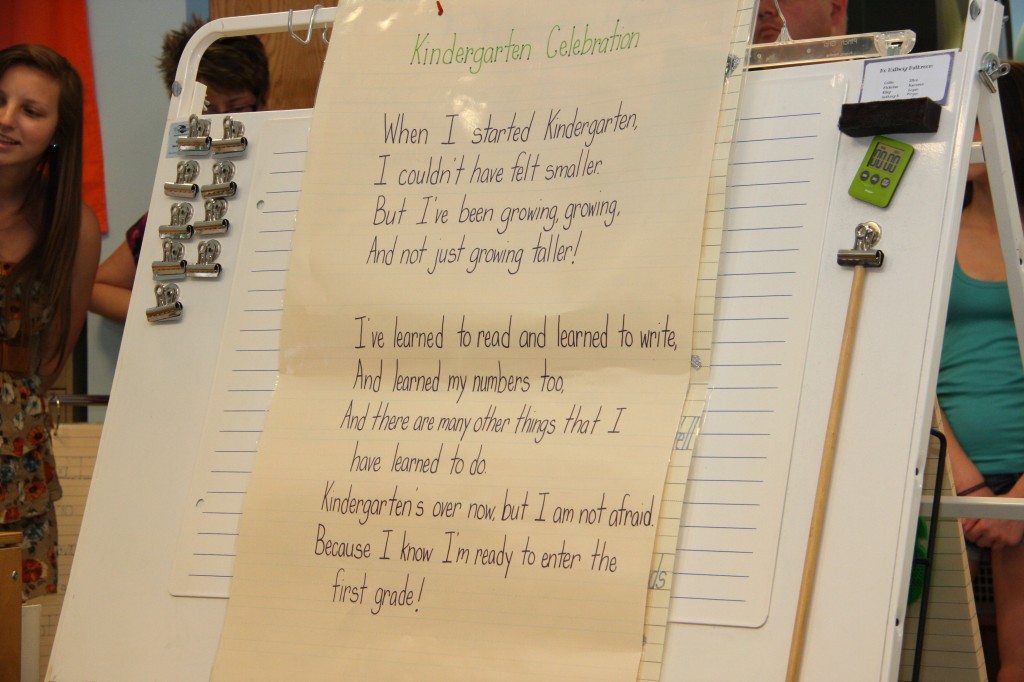 Kindergarten Celebration
When I started Kindergarten,
I couldn't have felt smaller.
But I've been growing, growing,
And not just growing taller!
I've learned to read and learned to write,
And learned my numbers too,
And there are many other things that I
have learned to do.
Kindergarten's over now, but I am not afraid.
Because I know I'm ready to enter the
first grade!
00:00